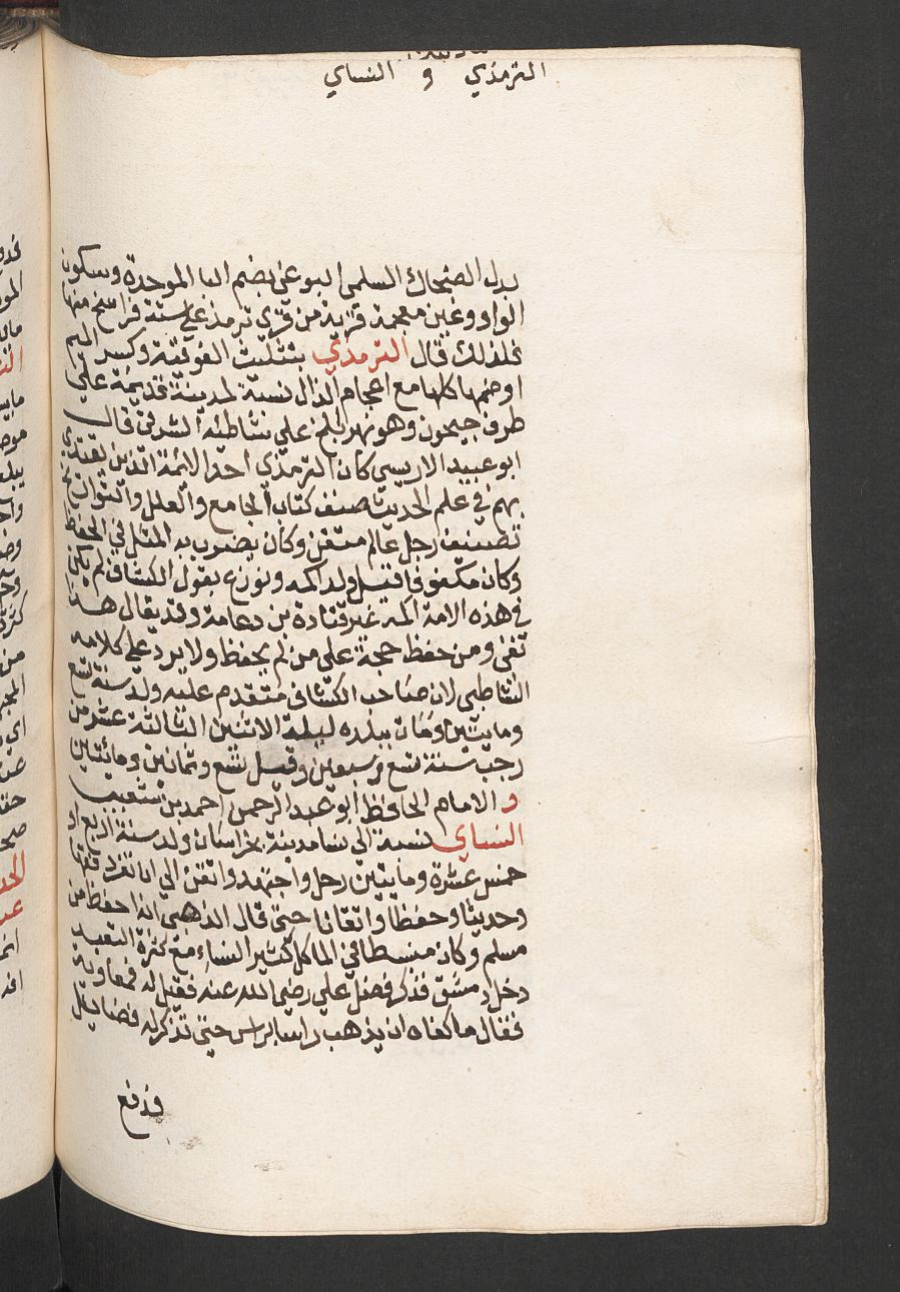 الترمذي و النساي
بدل الضحاك السلمي البوغي بضم البا الموحدة وسكون
الواو وغين معجمة قرية من قري ترمذ علي ستة فراسخ منها
فلذلك قال الترمذي بتثليث الفوقية وكسر الميم
او ضمها كلها مع اعجام الذال نسبة لمدينة قديمة علي
طرف جيحون وهو نهر بلخ علي شاطئه الشرقي قال
ابو عبيد الادريسي كان الترمذي احد الائمة الذين يقتدي
بهم في علم الحديث صنف كتاب الجامع والعلل والتواريخ
تصنيف رجل عالم متقن وكان يضرب به المثل في الحفظ
وكان مكفوفا قيل ولد اكمه ونوزع بقول الكشاف لم يكن
في هذه الامة اكمه غير قتادة بن دعامة وقد يقال هذا
نفي ومن حفظ حجة علي من لم يحفظ ولا يرد علي كلامه
الشاطبي لان صاحب الكشاف متقدم عليه ولد سنة تسع
ومايتين ومات ببلده ليلة الاثنين الثالثة عشر من
رجب سنة تسع وسبعين وقيل تسع وثمانين ومائتين
و الامام الحافظ ابو عبد الرحمن احمد بن شعيب
النساي نسبة الي نسا مدينة بخراسان ولد سنة اربع او
خمس عشرة ومايتين رحل واجتهد واتقن الي ان تفرد فقها
وحديثا وحفظا واتقانا حتي قال الذهبي انه احفظ من
مسلم وكان منبسطا في الماكل كثير النساء مع كثرة التعبد
دخل دمشق فذكر فضل علي رضي الله عنه فقيل له فمعاوية
فقال ما كفاه ان يذهب راسا براس حتي تذكر له فضايل
فدفع